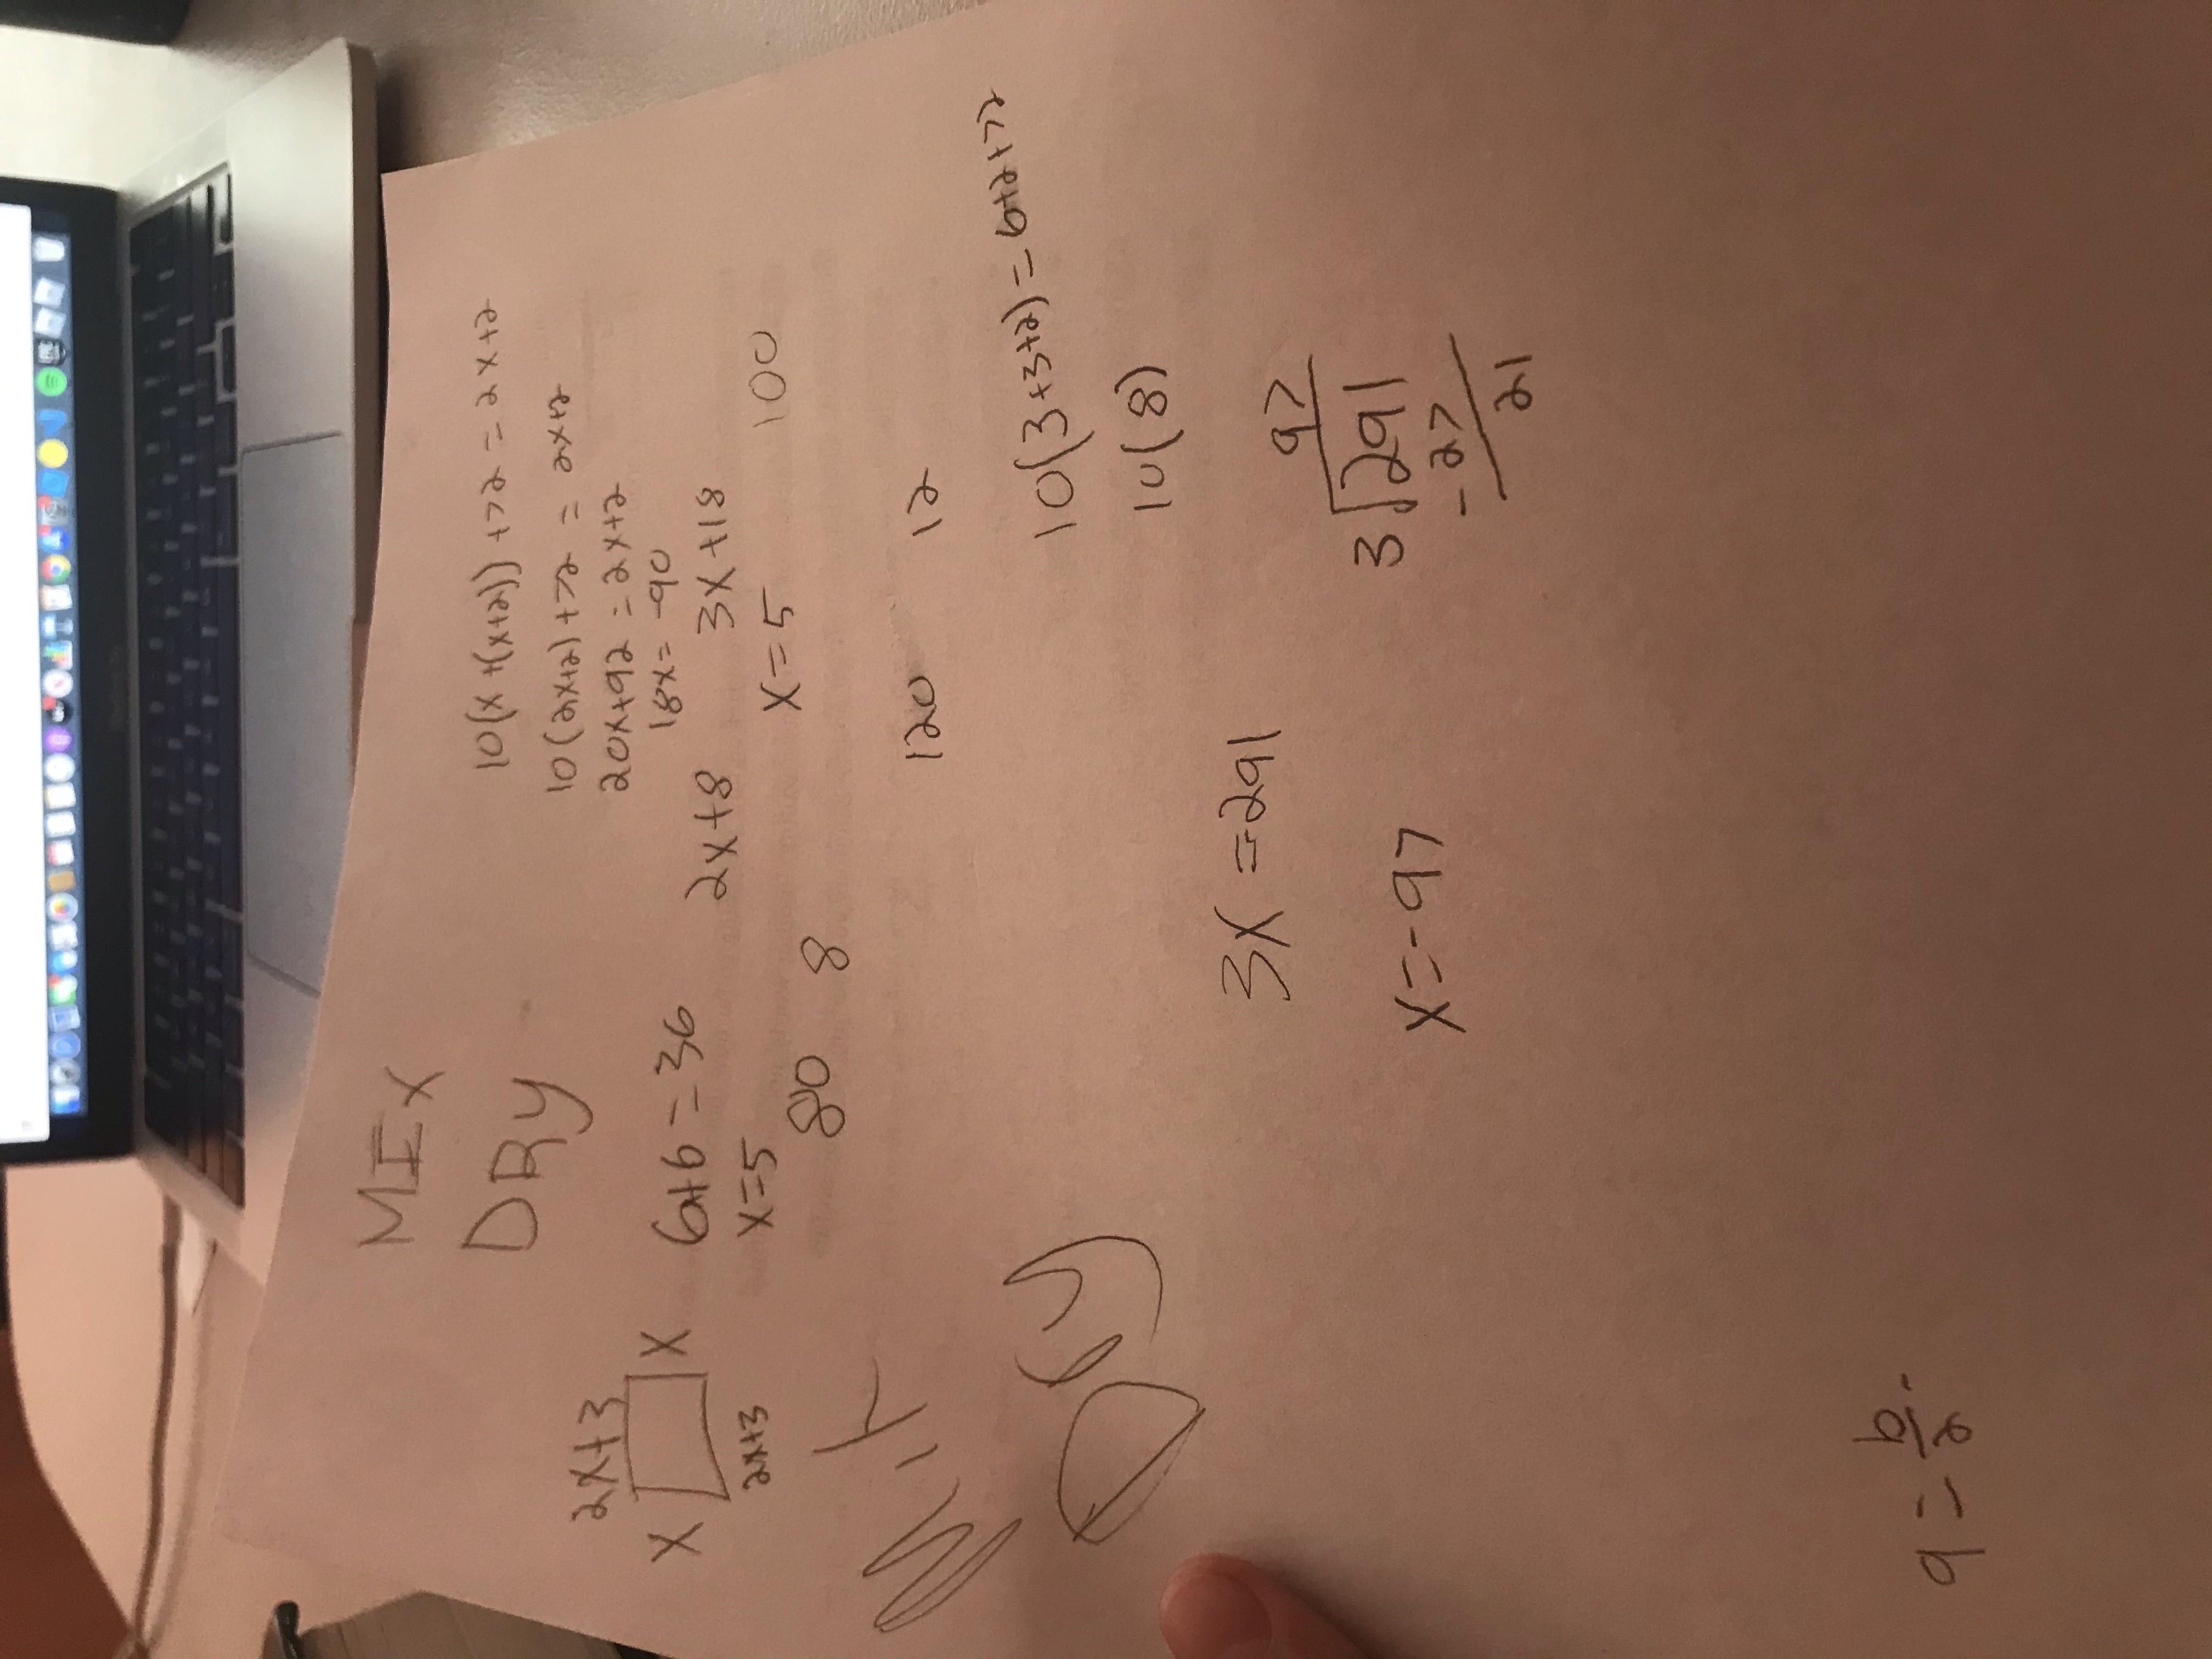 MIX
DRY
10(x+(x+2))+72=2x+2
10(2x+2)+72=2x+2
20x+92=2x+2
18x=-90
2x+3
x x
2x+3
6+6=36
x=5
2x+8
3x+18
x=5
100
80 8
Mit
Dry
120 12
10(3+3+2)=6+2+72
10(8)
3x=291
x=-97
97
3 291
-27
21
a=b/2-